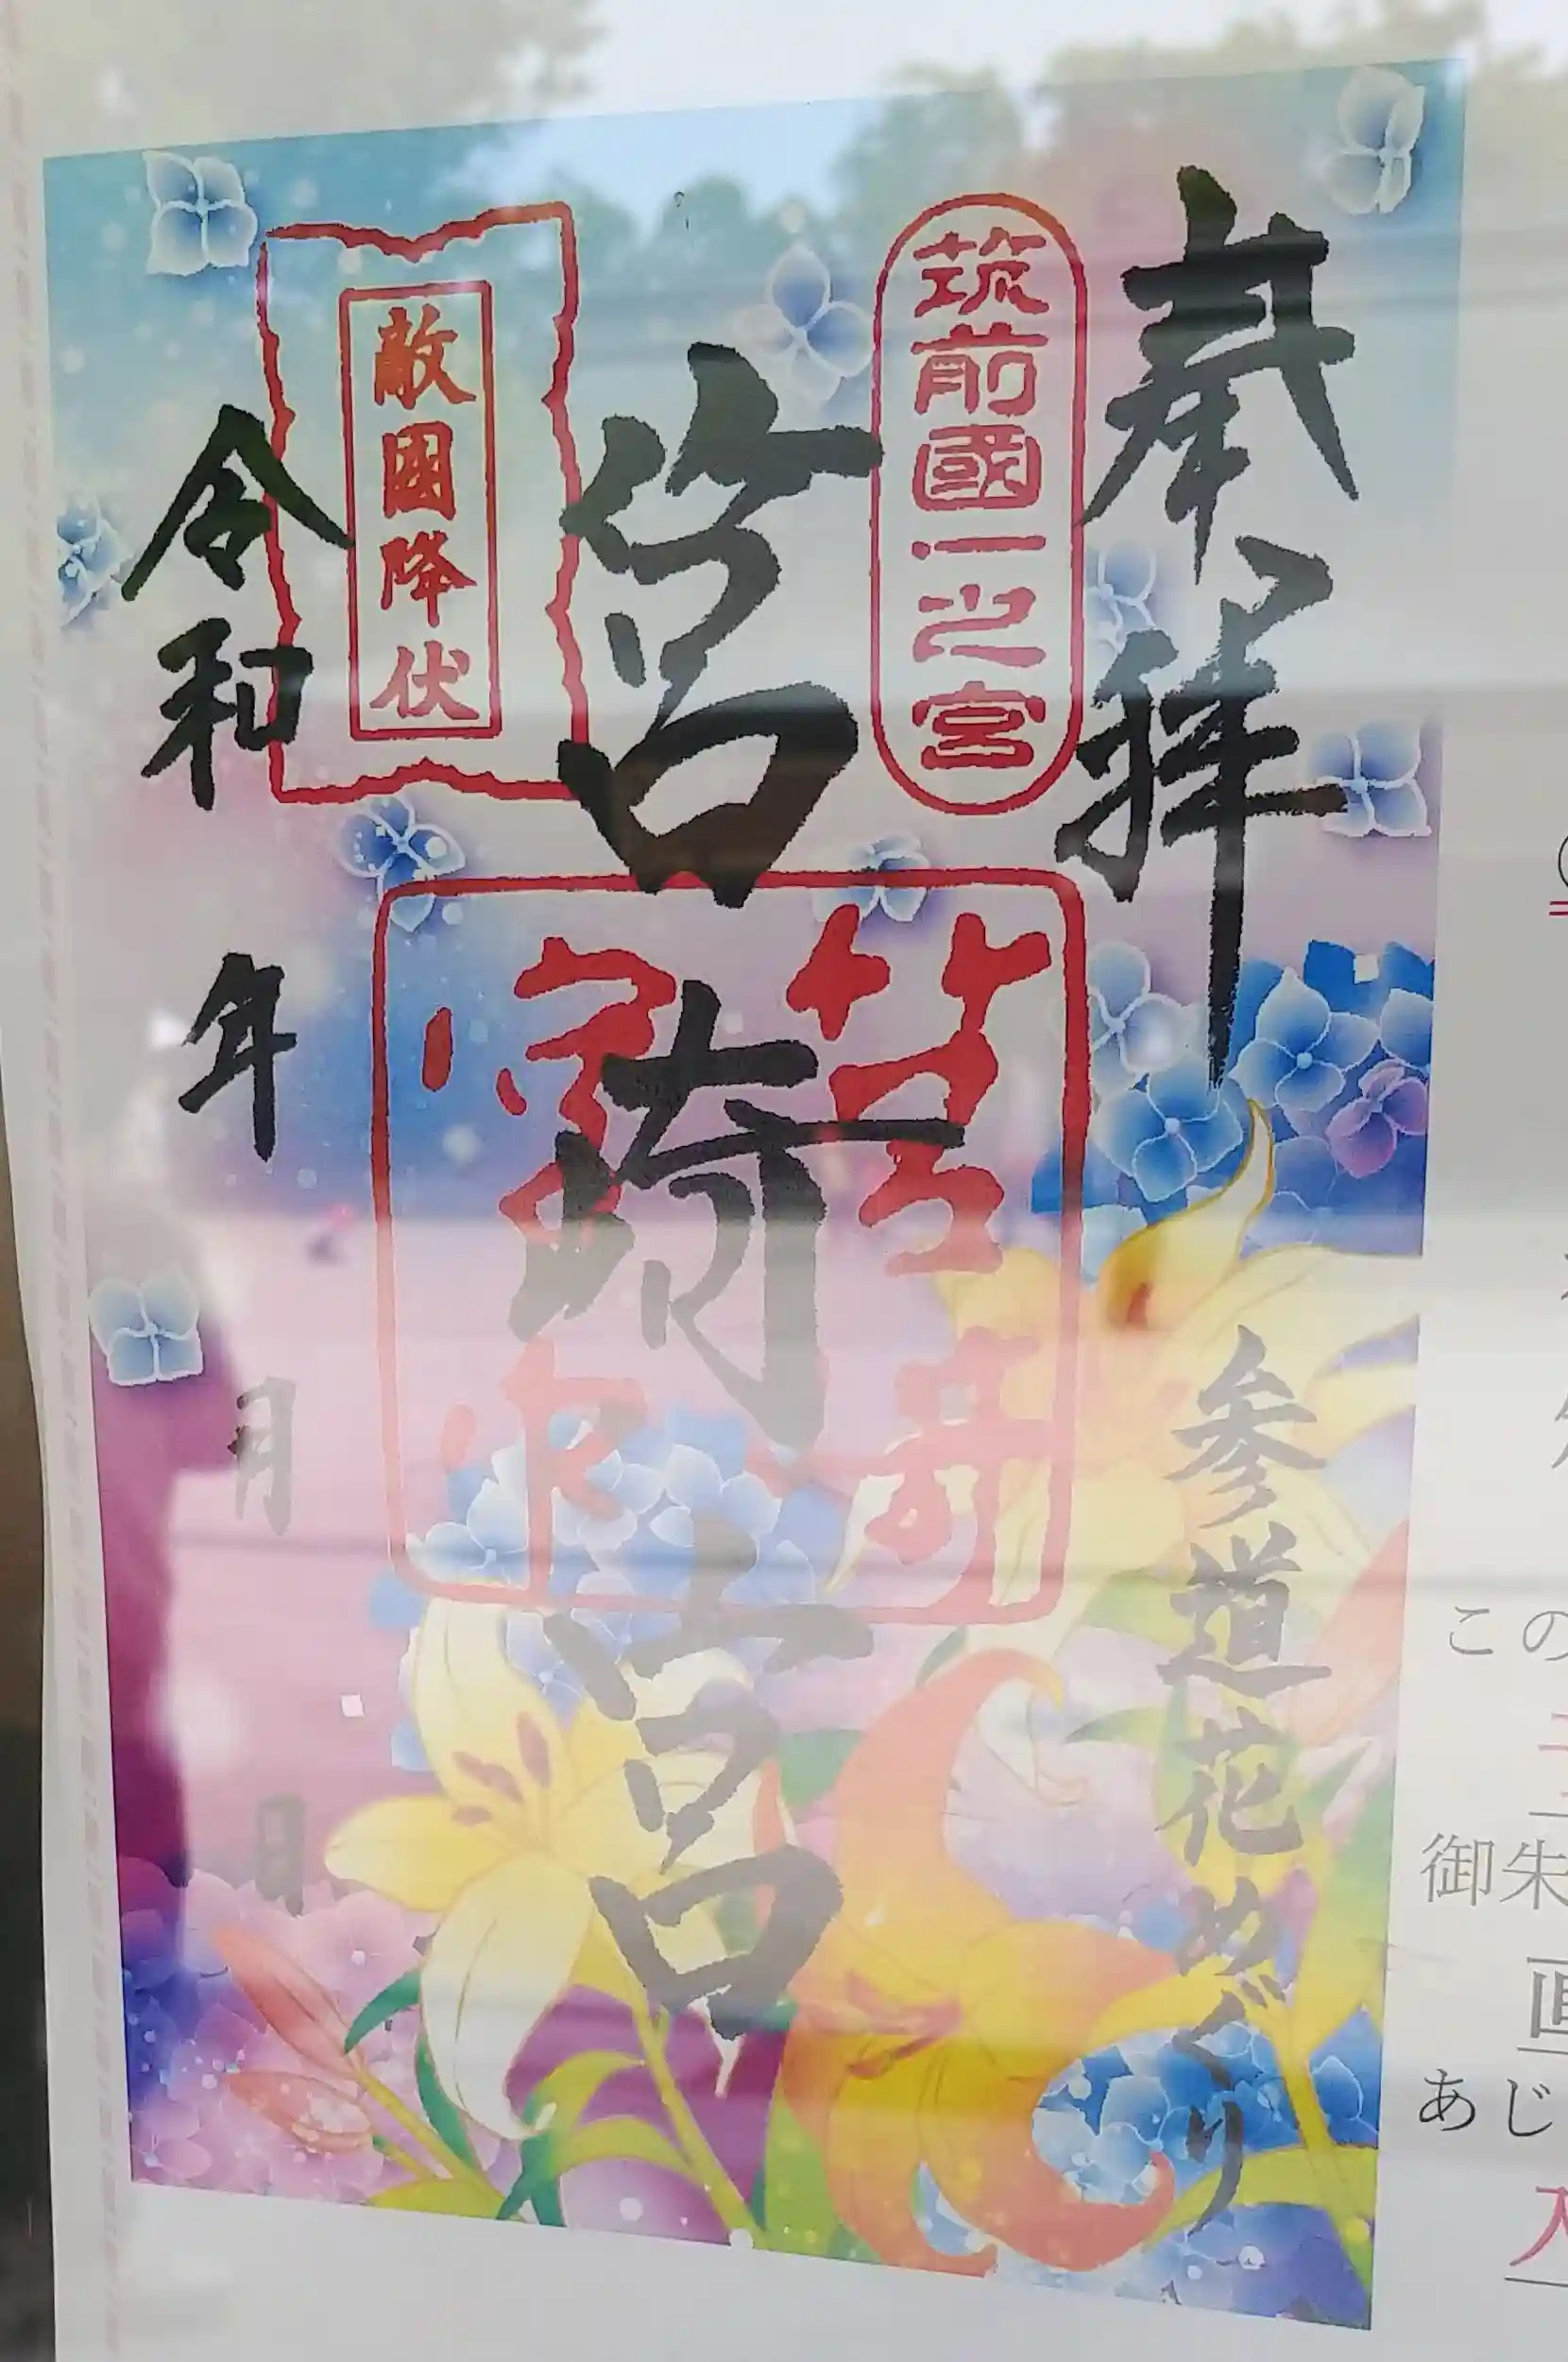 奉拝
参道花めぐり
筑前國一之宮
筥崎宮
筥崎宮印
敵國降伏
令和 年 月 日
この
御朱
あじ